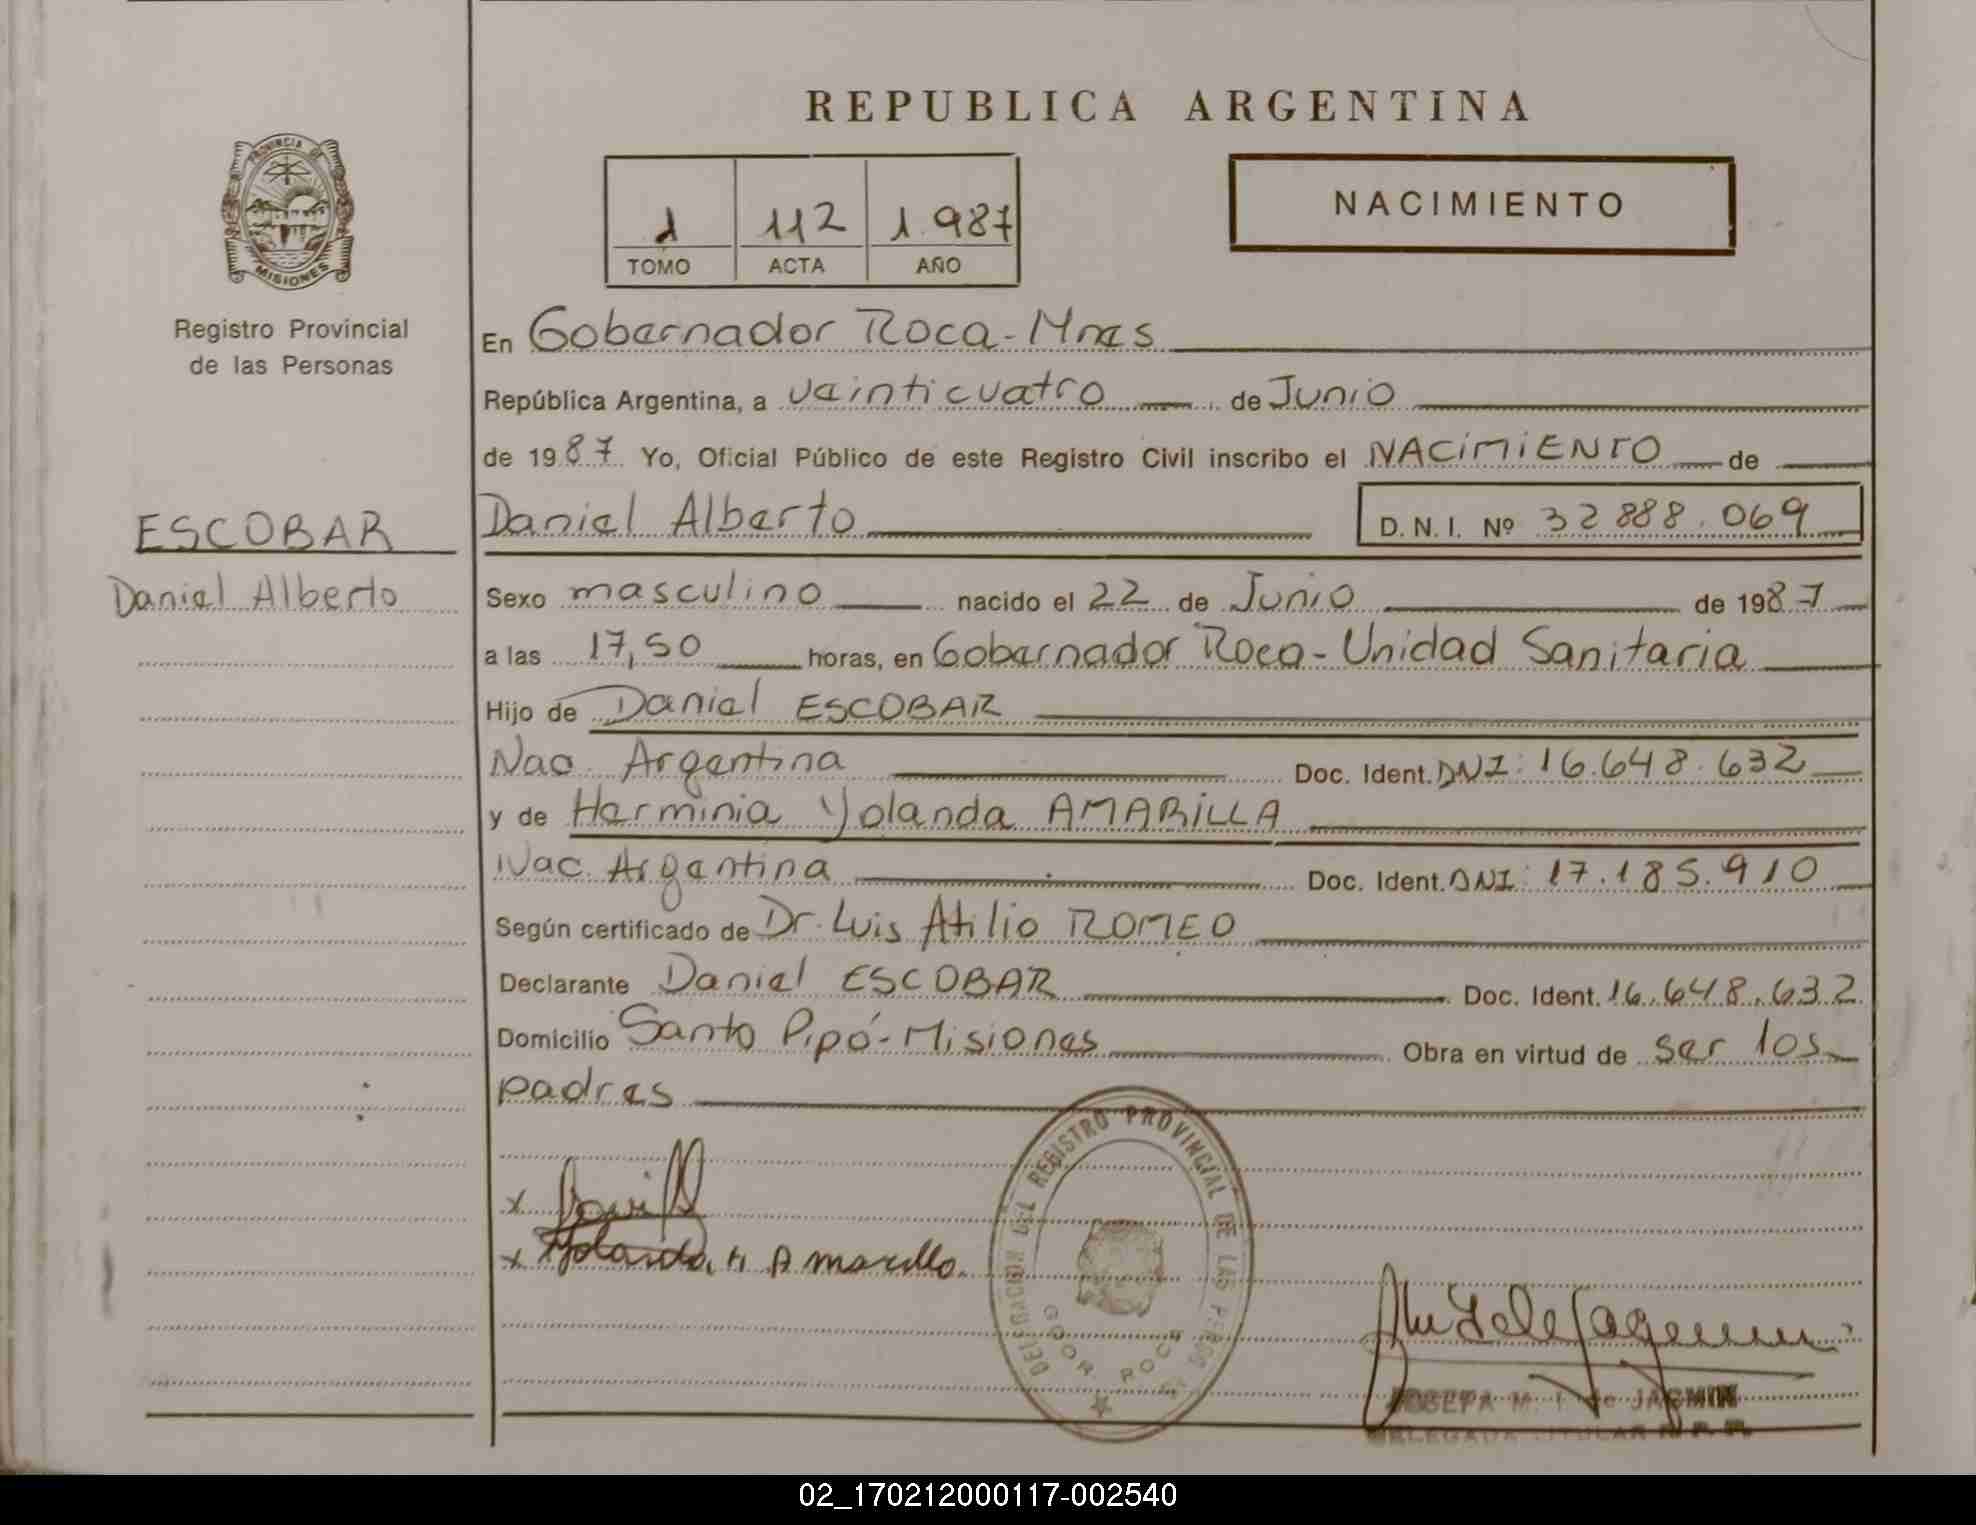 REPUBLICA ARGENTINA
PROVINCIA DE
MISIONES
Registro Provincial
de las Personas
1 112 1.987
TOMO ACTA AÑO
NACIMIENTO
En Gobernador Roca-Mnes
República Argentina, a veinticuatro de Junio
de 1987 Yo, Oficial Público de este Registro Civil inscribo el NACiMiENTO de
ESCOBAR
Daniel Alberto
Daniel Alberto D.N.I. Nº 32888.069
Sexo masculino nacido el 22 de Junio de 1987
a las 17,50 horas, en Gobernador Roca-Unidad Sanitaria
Hijo de Daniel ESCOBAR
Nac. Argentina Doc. Ident. DNI: 16.648.632
y de Herminia Yolanda AMARiLLA
Nac. Argentina Doc. Ident. DNI: 17.185.910
Según certificado de Dr. Luis Atilio ROMEO
Declarante Daniel ESCOBAR Doc. Ident. 16.648.632
Domicilio Santo Pipó-Misiones Obra en virtud de ser los
padres
x
x Yolanda H Amarilla.
DELEGACION DEL REGISTRO PROVINCIAL DE LAS PERSONAS
GDOR. ROCA
JOSEFA M. I. de JASMIN
DELEGADA TITULAR R. P. P.
02_170212000117-002540